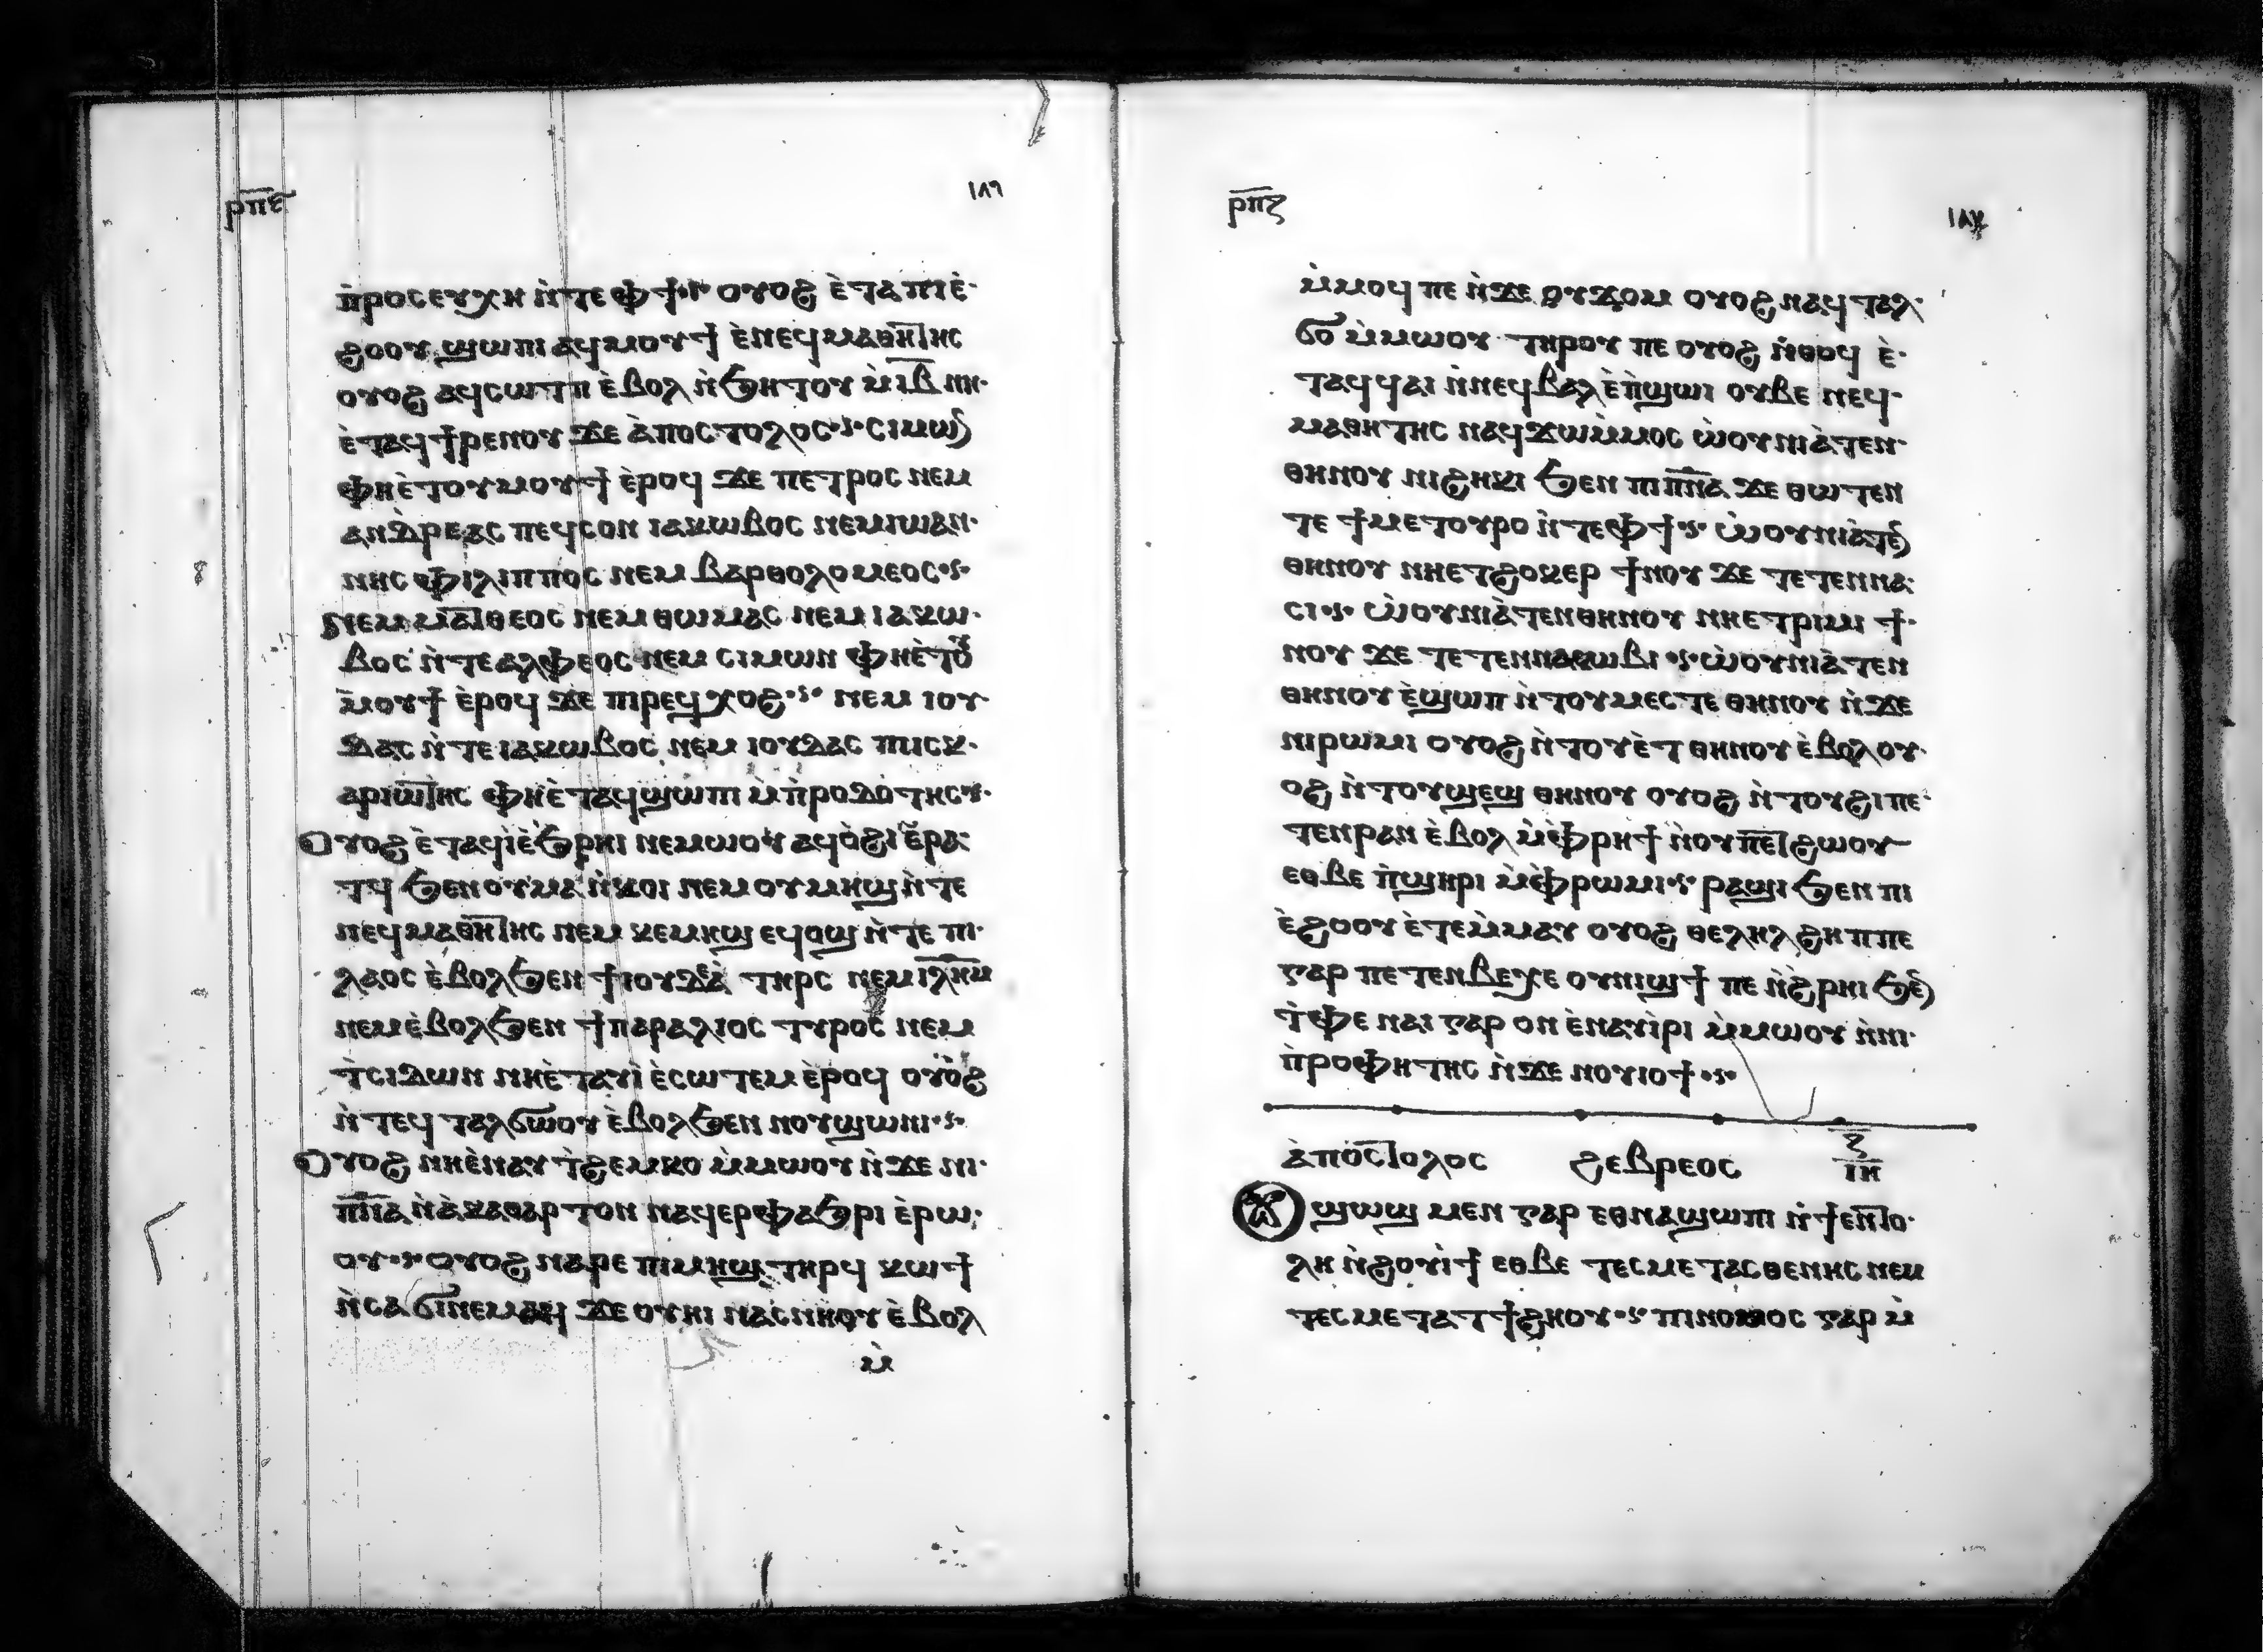 ⲣⲡⲉ
ⲡ̀ⲣⲟⲥⲉⲩⲭⲏ ⲛ̀ⲧⲉ ⲫϯ ⲟⲩⲟϩ ⲉ̀ⲧⲁ ⲡⲓⲉ̀
ϩⲟⲟⲩ ϣⲱⲡⲓ ⲁϥⲙⲟⲩϯ ⲉ̀ⲛⲉϥⲙⲁⲑⲏⲧⲏⲥ
ⲟⲩⲟϩ ⲁϥⲥⲱⲧⲡ ⲉ̀ⲃⲟⲗ ⲛ̀ϧⲏⲧⲟⲩ ⲙ̀ⲓ̅ⲃ̅ ⲛⲏ
ⲉ̀ⲧⲁϥϯⲣⲉⲛⲟⲩ ϫⲉ ⲁ̀ⲡⲟⲥⲧⲟⲗⲟⲥ ⲥⲓⲙⲱⲛ
ⲫⲏⲉ̀ⲧⲟⲩⲙⲟⲩϯ ⲉ̀ⲣⲟϥ ϫⲉ ⲡⲉⲧⲣⲟⲥ ⲛⲉⲙ
ⲁⲛⲇⲣⲉⲁⲥ ⲡⲉϥⲥⲟⲛ ⲓⲁⲕⲱⲃⲟⲥ ⲛⲉⲙ ⲓⲱⲁⲛ
ⲛⲏⲥ ⲫⲓⲗⲓⲡⲡⲟⲥ ⲛⲉⲙ ⲃⲁⲣⲑⲟⲗⲟⲙⲉⲟⲥ
ⲛⲉⲙ ⲙⲁⲧⲑⲉⲟⲥ ⲛⲉⲙ ⲑⲱⲙⲁⲥ ⲛⲉⲙ ⲓⲁⲕⲱ
ⲃⲟⲥ ⲛ̀ⲧⲉ ⲁⲗⲫⲉⲟⲥ ⲛⲉⲙ ⲥⲓⲙⲱⲛ ⲫⲏⲉ̀ⲧⲟⲩ
ⲙⲟⲩϯ ⲉ̀ⲣⲟϥ ϫⲉ ⲡⲓⲣⲉϥⲭⲟϩ ⲛⲉⲙ ⲓⲟⲩ
ⲇⲁⲥ ⲛ̀ⲧⲉ ⲓⲁⲕⲱⲃⲟⲥ ⲛⲉⲙ ⲓⲟⲩⲇⲁⲥ ⲡⲓⲥⲕ
ⲁⲣⲓⲱⲧⲏⲥ ⲫⲏⲉ̀ⲧⲁϥϣⲱⲡⲓ ⲙ̀ⲡ̀ⲣⲟⲇⲟⲧⲏⲥ
ⲟⲩⲟϩ ⲉ̀ⲧⲁϥⲓ̀ⲉ̀ϧⲣⲏⲓ ⲛⲉⲙⲱⲟⲩ ⲁϥⲟ̀ϩⲓ ⲉ̀ⲣⲁ
ⲧϥ ϧⲉⲛ ⲟⲩⲙⲁ ⲛ̀ⲕⲟⲓ ⲛⲉⲙ ⲟⲩⲙⲏϣ ⲛ̀ⲧⲉ
ⲛⲉϥⲙⲁⲑⲏⲧⲏⲥ ⲛⲉⲙ ⲕⲉⲙⲏϣ ⲉϥⲟϣ ⲛ̀ⲧⲉ ⲡⲓ
ⲗⲁⲟⲥ ⲉ̀ⲃⲟⲗϧⲉⲛ ϯⲓⲟⲩⲇⲉⲁ̀ ⲧⲏⲣⲥ ⲛⲉⲙ ⲓⲗⲏⲙ
ⲛⲉⲙ ⲉ̀ⲃⲟⲗϧⲉⲛ ϯⲡⲁⲣⲁⲗⲓⲟⲥ ⲧⲩⲣⲟⲥ ⲛⲉⲙ
ⲧ̀ⲥⲓⲇⲱⲛ ⲛⲏⲉ̀ⲧⲁⲩⲓ̀ ⲉ̀ⲥⲱⲧⲉⲙ ⲉ̀ⲣⲟϥ ⲟⲩⲟϩ
ⲛ̀ⲧⲉϥⲧⲁⲗϭⲱⲟⲩ ⲉ̀ⲃⲟⲗϧⲉⲛ ⲛⲟⲩϣⲱⲛⲓ
ⲟⲩⲟϩ ⲛⲏⲉ̀ⲛⲁⲩⲧ̀ϩⲉⲙⲕⲟ ⲙ̀ⲙⲱⲟⲩ ⲛ̀ϫⲉ ⲛⲓ
ⲡ̅ⲛ̅ⲁ̅ ⲛ̀ⲁ̀ⲕⲁⲑⲁⲣⲧⲟⲛ ⲛⲁϥⲉⲣⲫⲁϧⲣⲓ ⲉ̀ⲣⲱ
ⲟⲩ ⲟⲩⲟϩ ⲛⲁⲣⲉ ⲡⲓⲙⲏϣ ⲧⲏⲣϥ ⲕⲱϯ
ⲛ̀ⲥⲁ ϭⲓⲛⲉⲙⲁϥ ϫⲉ ⲟⲩⲏⲓ ⲛⲁⲥⲛⲏⲟⲩ ⲉ̀ⲃⲟⲗ
ⲙ̀
ⲣⲡⲋ
ⲙ̀ⲙⲟϥ ⲡⲉ ⲛ̀ϫⲉ ⲟⲩϫⲟⲙ ⲟⲩⲟϩ ⲛⲁϥⲧⲁⲗ
ϭⲟ ⲙ̀ⲙⲱⲟⲩ ⲧⲏⲣⲟⲩ ⲡⲉ ⲟⲩⲟϩ ⲛ̀ⲑⲟϥ ⲉ̀
ⲧⲁϥϥⲁⲓ ⲛ̀ⲛⲉϥⲃⲁⲗ ⲉ̀ⲡ̀ϣⲱⲓ ⲟⲩⲃⲉ ⲛⲉϥ
ⲙⲁⲑⲏⲧⲏⲥ ⲛⲁϥϫⲱⲙ̀ⲙⲟⲥ ⲱ̀ⲟⲩⲛⲓⲁ̀ⲧⲉⲛ
ⲑⲏⲛⲟⲩ ⲛⲓϩⲏⲕⲓ ϧⲉⲛ ⲡⲓⲡ̅ⲛ̅ⲁ̅ ϫⲉ ⲑⲱⲧⲉⲛ
ⲧⲉ ϯⲙⲉⲧⲟⲩⲣⲟ ⲛ̀ⲧⲉ ⲫϯ ⲱ̀ⲟⲩⲛⲓⲁ̀ⲧⲉⲛ
ⲑⲏⲛⲟⲩ ⲛⲏⲉⲧϩⲟⲕⲉⲣ ϯⲛⲟⲩ ϫⲉ ⲧⲉⲧⲉⲛⲛⲁ
ⲥⲓ ⲱ̀ⲟⲩⲛⲓⲁ̀ⲧⲉⲛⲑⲏⲛⲟⲩ ⲛⲏⲉⲧⲣⲓⲙⲓ ϯ
ⲛⲟⲩ ϫⲉ ⲧⲉⲧⲉⲛⲛⲁⲥⲱⲃⲓ ⲱ̀ⲟⲩⲛⲓⲁ̀ⲧⲉⲛ
ⲑⲏⲛⲟⲩ ⲉ̀ϣⲱⲡ ⲛ̀ⲧⲟⲩⲙⲉⲥⲧⲉ ⲑⲏⲛⲟⲩ ⲛ̀ϫⲉ
ⲛⲓⲣⲱⲙⲓ ⲟⲩⲟϩ ⲛ̀ⲧⲟⲩⲉ̀ⲧ ⲑⲏⲛⲟⲩ ⲉ̀ⲃⲟⲗ ⲟⲩ
ⲟϩ ⲛ̀ⲧⲟⲩϣⲉϣ ⲑⲏⲛⲟⲩ ⲟⲩⲟϩ ⲛ̀ⲧⲟⲩϩⲓ ⲡⲉ
ⲧⲉⲛⲣⲁⲛ ⲉ̀ⲃⲟⲗ ⲙ̀ⲫ̀ⲣⲏϯ ⲛ̀ⲟⲩⲡⲉⲧϩⲱⲟⲩ
ⲉⲑⲃⲉ ⲡ̀ϣⲏⲣⲓ ⲙ̀ⲫ̀ⲣⲱⲙⲓ ⲣⲁϣⲓ ϧⲉⲛ ⲡⲓ
ⲉ̀ϩⲟⲟⲩ ⲉ̀ⲧⲉⲙ̀ⲙⲁⲩ ⲟⲩⲟϩ ⲑⲉⲗⲏⲗ ϩⲏⲡⲡⲉ
ⲅⲁⲣ ⲡⲉⲧⲉⲛⲃⲉⲭⲉ ⲟⲩⲛⲓϣϯ ⲡⲉ ⲛ̀ϩ̀ⲣⲏⲓ ϧⲉⲛ
ⲧ̀ⲫⲉ ⲛⲁⲓ ⲅⲁⲣ ⲟⲛ ⲉ̀ⲛⲁⲩⲓ̀ⲣⲓ ⲙ̀ⲙⲱⲟⲩ ⲛ̀ⲛⲓ
ⲡ̀ⲣⲟⲫⲏⲧⲏⲥ ⲛ̀ϫⲉ ⲛⲟⲩⲓⲟϯ
ⲁ̀ⲡⲟⲥⲧⲟⲗⲟⲥ ϩⲉⲃⲣⲉⲟⲥ ⲍ ⲓⲏ
ⲟⲩϣⲱϣ ⲙⲉⲛ ⲅⲁⲣ ⲉⲑⲛⲁϣⲱⲡⲓ ⲛ̀ϯⲉⲛⲧⲟ
ⲗⲏ ⲛ̀ϩⲟⲩⲓ̀ϯ ⲉⲑⲃⲉ ⲧⲉⲥⲙⲉⲧⲁⲥⲑⲉⲛⲏⲥ ⲛⲉⲙ
ⲧⲉⲥⲙⲉⲧⲁⲧϯϩⲏⲟⲩ ⲡⲓⲛⲟⲙⲟⲥ ⲅⲁⲣ ⲙ̀